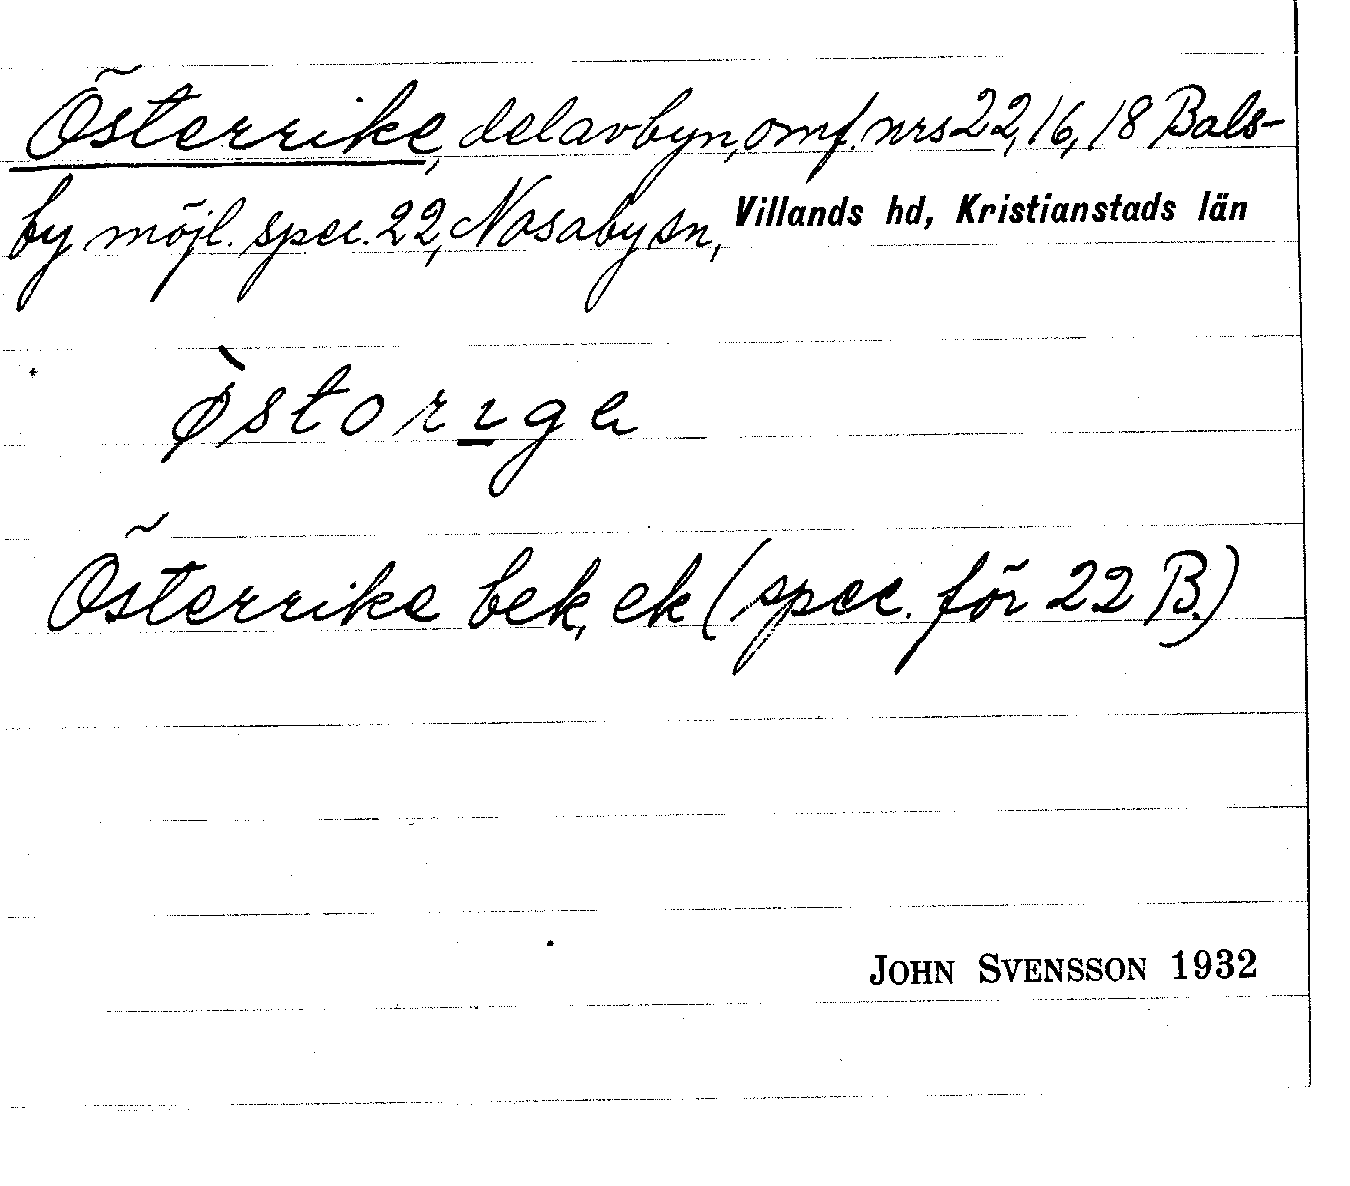 Österrike, del av byn, omf. nrs 22, 16, 18 Bals-
by möjl. spec. 22, Nosaby sn, Villands hd, Kristianstads län
ø̀storıga
Österrike bek, ek (spec. för 22 B.)
JOHN SVENSSON 1932